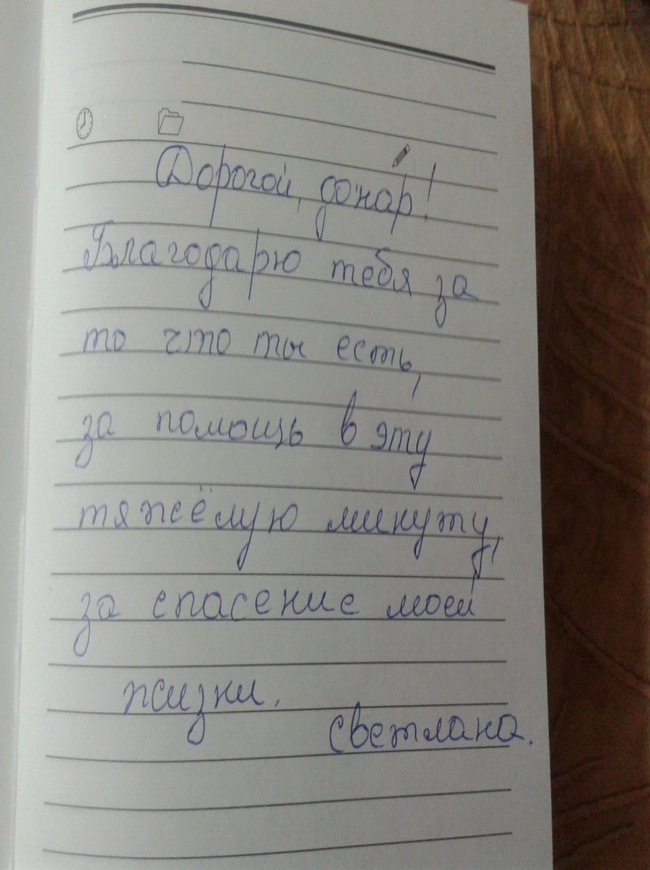 Дорогой, донар!
Благодарю тебя за
то что ты есть,
за помощь в эту
тяжёлую минуту,
за спасение моей
жизни.
Светлана.